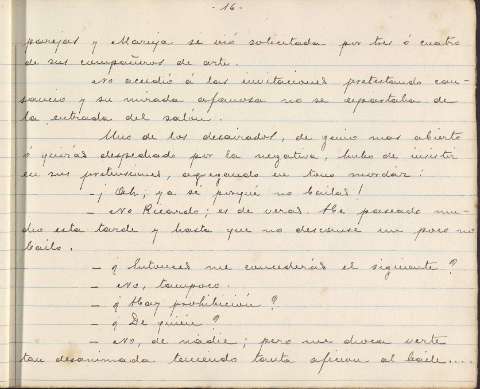 - 16 -
parejas y Maruja se vió solicitada por tres ó cuatro
de sus compañeros de arte.
No acudió á las invitaciones pretestando can-
sancio y su mirada afanosa no se apartaba de
la entrada del salón.
Uno de los desairados, de genio mas abierto
ó quizás despechado por la negativa, hubo de insistir
en sus pretensiones, agregando en tono mordaz:
- ¡Oh; ya sé porqué no bailas!
- No Ricardo; es de veras. He paseado mu-
cho esta tarde y hasta que no descanse un poco no
bailo.
- ¿Entonces me concederás el siguiente?
- No, tampoco.
- ¿Hay prohibición?
- ¿De quién?
- No, de nadie; pero me choca verte
tan desanimada teniendo tanta aficion al baile....